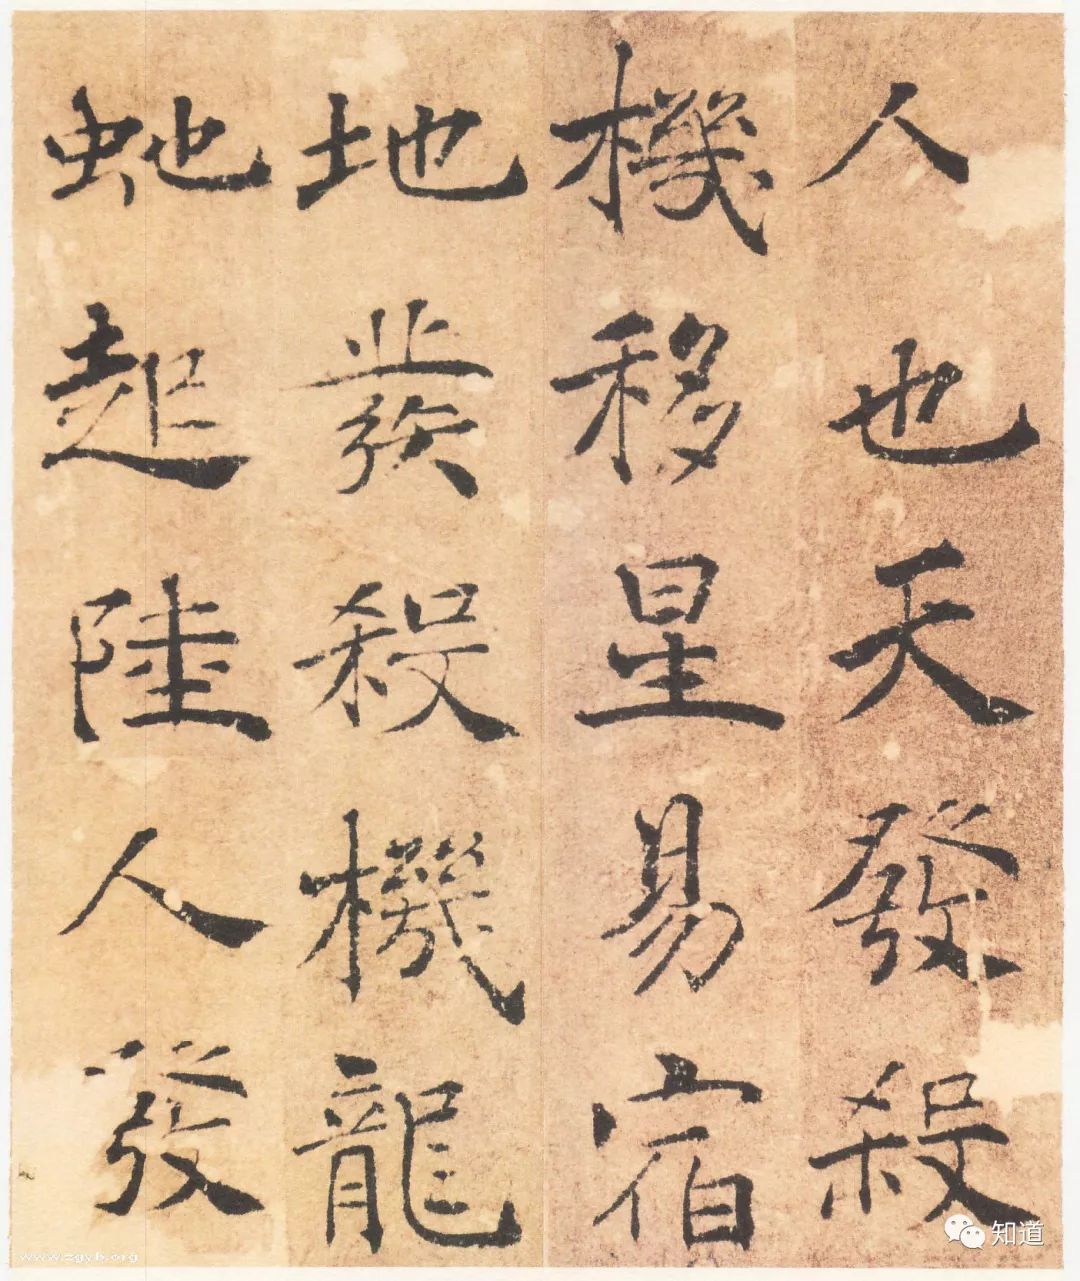 人也天發殺
機移星易宿
地發殺機龍
虵起陸人發
知道
www.zgyb.org